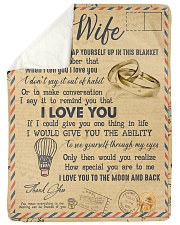 Wife
AP YOURSELF UP IN THIS BLANKET
ber that
when I tell you I love you
I don't say it out of habit
Or to make conversation
I say it to remind you that
I LOVE YOU
If I could give you one thing in life
I WOULD GIVE YOU THE ABILITY
to see yourself through my eyes
Only then would you realize
How special you are to me
I LOVE YOU TO THE MOON AND BACK